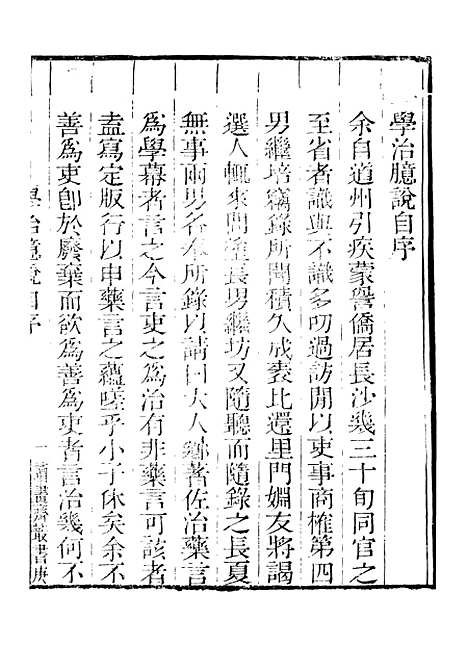 學治臆說自序
余自道州引疾蒙譽僑居長沙幾三十旬同官之
至省者識與不識多叨過訪閒以吏事商榷第四
男繼培竊錄所聞積久成袠比還里門婣友將謁
選人輒來問塗長男繼坊又隨聽而隨錄之長夏
無事兩男各奉所錄以請曰大人鄉著佐治藥言
為學幕者言之今言吏之為治有非藥言可該者
盍寫定版行以申藥言之蘊嗟乎小子休矣余不
善為吏卽於廢棄而欲為善為吏者言治幾何不
學治臆說自序
一
讀畫齋叢書庚